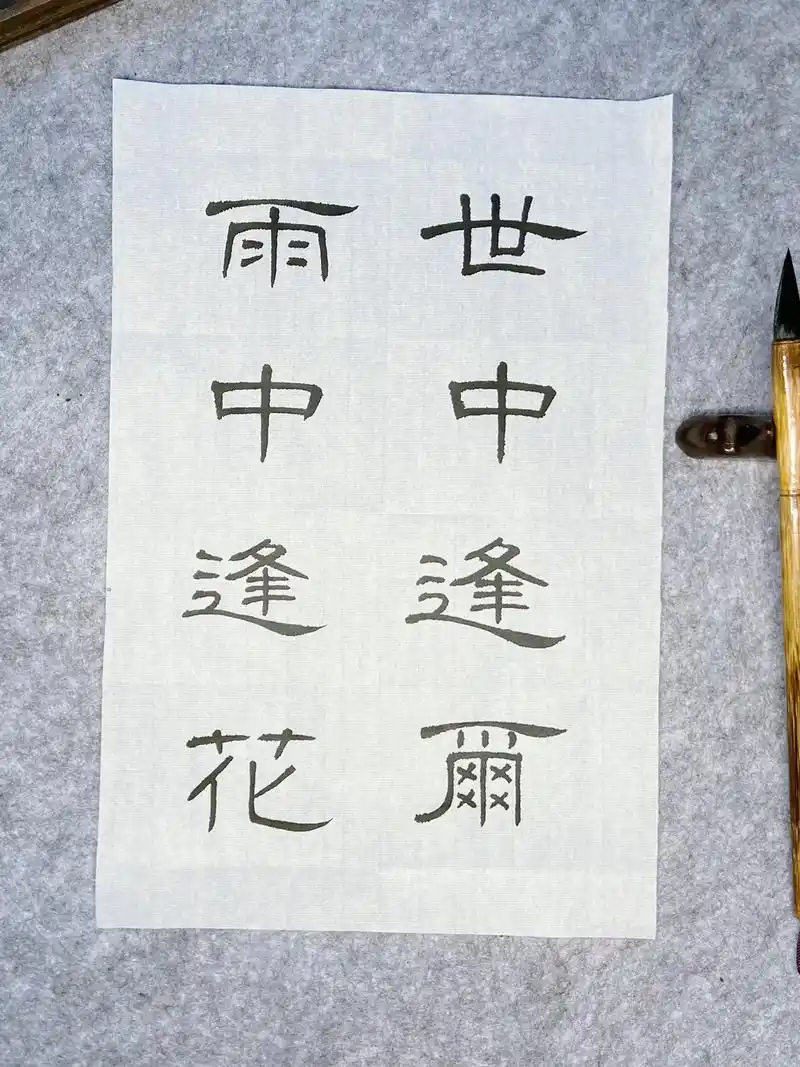 世中逢爾
雨中逢花